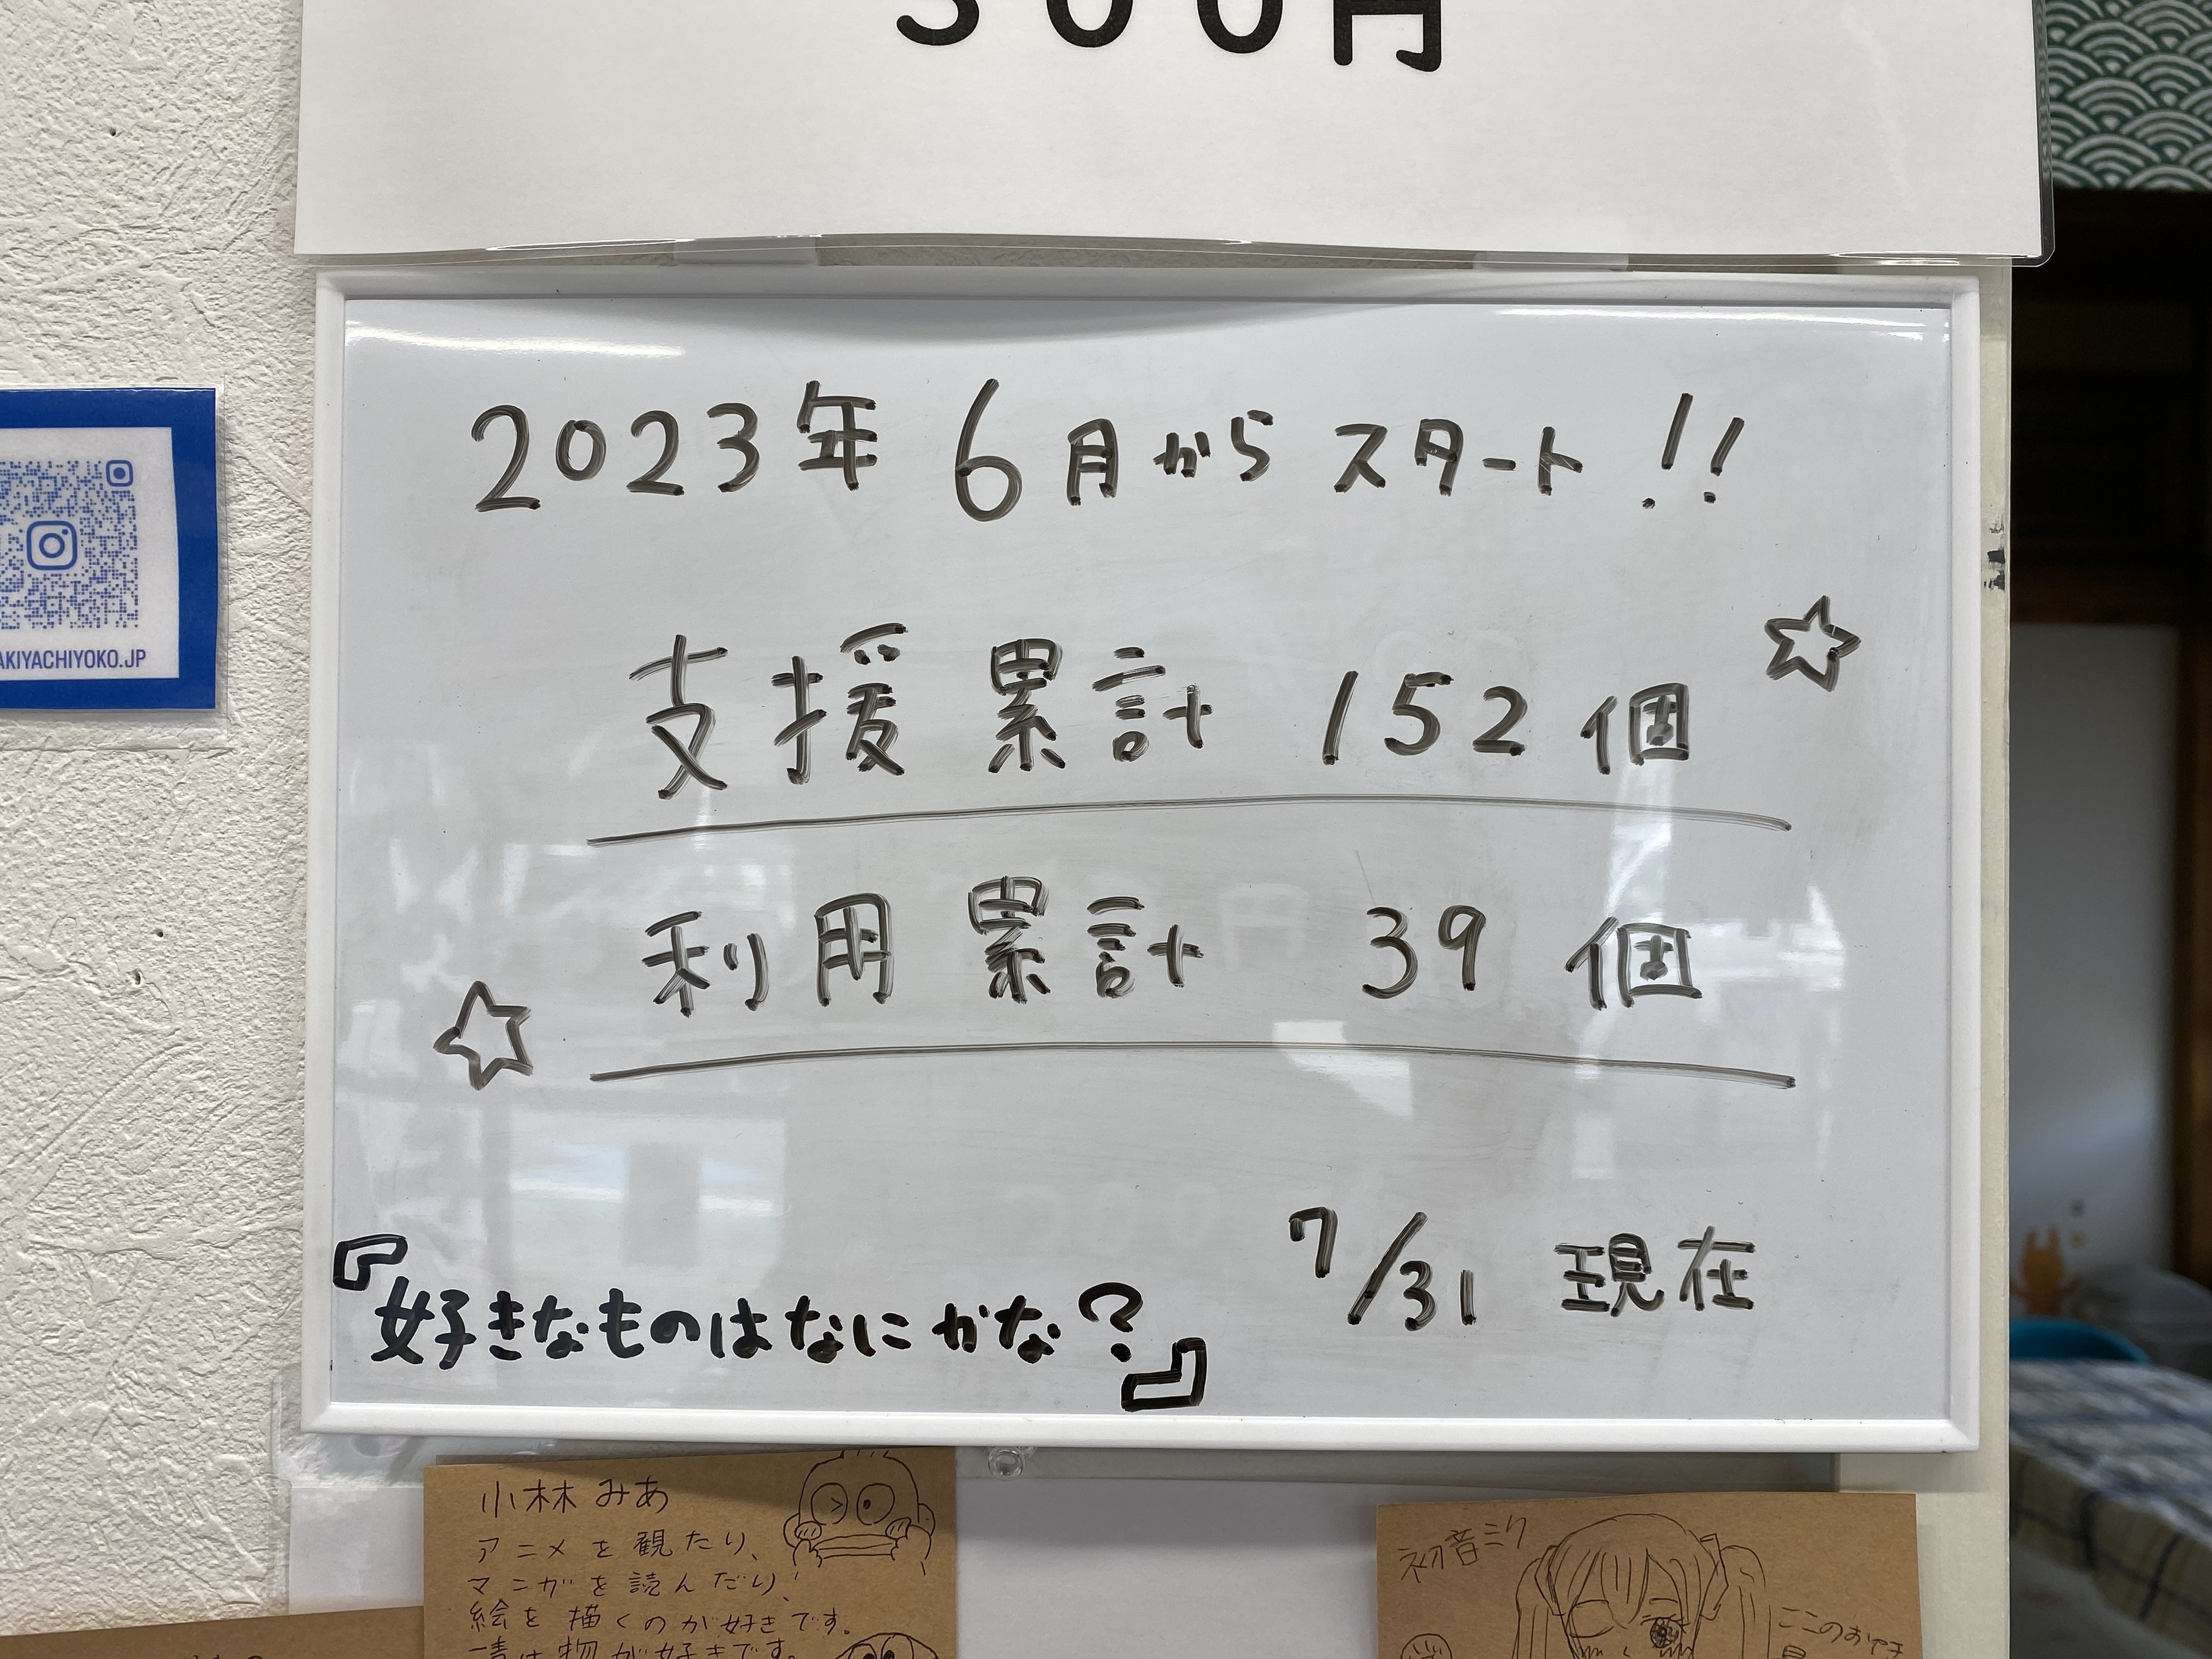 300円
AKIYACHIYOKO.JP
2023年 6月から スタート!!
支援 累計 152個
利用 累計 39個
7/31 現在
『好きなものはなにかな?』
小林 みあ
アニメを観たり、
マンガを読んだり、
絵を描くのが好きです。
が好きです。
初音ミク